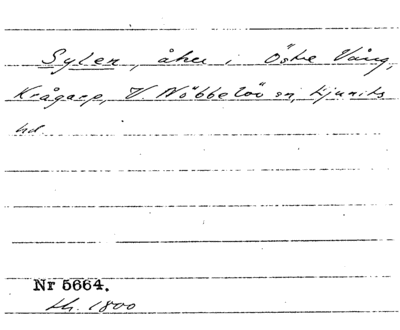 Sylen, åker i Östre Vång,
Krågarp, V. Nöbbelöv sn, Ljunits
hd
Nr 5664.
Lh. 1800